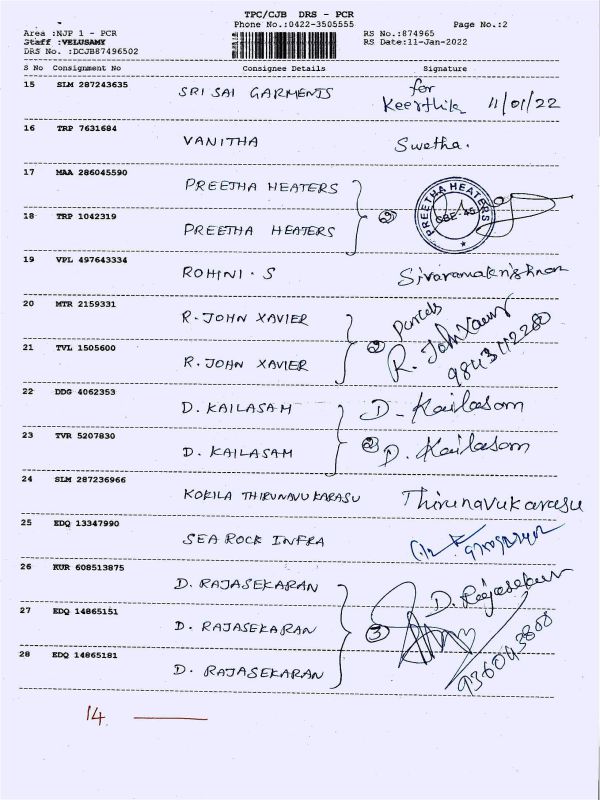 TPC/CJB DRS - PCR
Phone No.:0422-3505555 Page No.:2
Area :NJP 1 - PCR RS No.:874965
Staff :VELUSAMY RS Date:11-Jan-2022
DRS No. :DCJB87496502
S No Consignment No Consignee Details Signature
15 SLM 287243635 SRI SAI GARMENTS for
Keerthik 11/01/22
16 TRP 7631684 VANITHA Swetha.
17 MAA 286045590 PREETHA HEATERS
② PREETHA HEATERS CBE-45
18 TRP 1042319 PREETHA HEATERS
19 VPL 497643334 ROHINI. S Sivaramakrishnan
20 MTR 2159331 R. JOHN XAVIER
② Parcels
R. John Xavier
21 TVL 1505600 R. JOHN XAVIER
22 DDG 4062353 D. KAILASAM D. Kailasam
23 TVR 5207830 D. KAILASAM ② D. Kailasam
24 SLM 287236966 KOKILA THIRUNAVUKARASU Thirunavukarasu
25 EDQ 13347990 SEAROCK INFRA
26 KUR 608513875 D. RAJASEKARAN D. Rajasekar
27 EDQ 14865151 D. RAJASEKARAN ③
28 EDQ 14865181 D. RAJASEKARAN
14